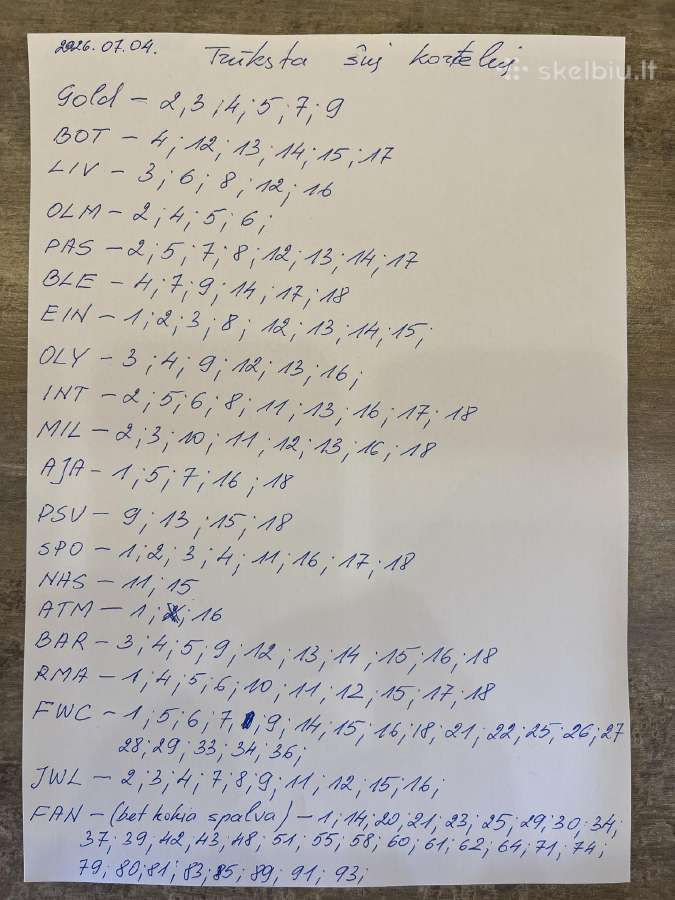 2026.07.04. Trūksta šių kortelių
skelbiu.lt
Gold – 2,3;4;5;7;9
BOT – 4;12;13;14;15;17
LIV – 3;6;8;12;16
OLM – 2;4;5;6;
PAS – 2;5;7;8;12;13;14;17
BLE – 4;7;9;14;17;18
EIN – 1;2;3;8;12;13;14;15;
OLY – 3;4;9;12;13;16;
INT – 2;5;6;8;11;13;16;17;18
MIL – 2;3;10;11;12;13;16;18
AJA – 1;5;7;16;18
PSV – 9;13;15;18
SPO – 1;2;3;4;11;16;17;18
NAS – 11;15
ATM – 1;16
BAR – 3;4;5;9;12;13;14;15;16;18
RMA – 1;4;5;6;10;11;12;15;17;18
FWC – 1;5;6;7,9;14;15;16;18;21;22;25;26;27
28;29;33;34;36;
JWL – 2;3;4;7;8;9;11;12;15;16;
FAN – (bet kokia spalva) – 1;14;20;21;23;25;29;30;34;
37;39;42;43;48;51;55;58;60;61;62;64;71;74;
79;80;81;83;85;89;91;93;